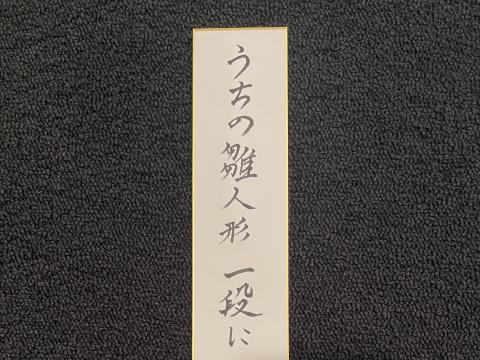 うちの雛人形 一段に